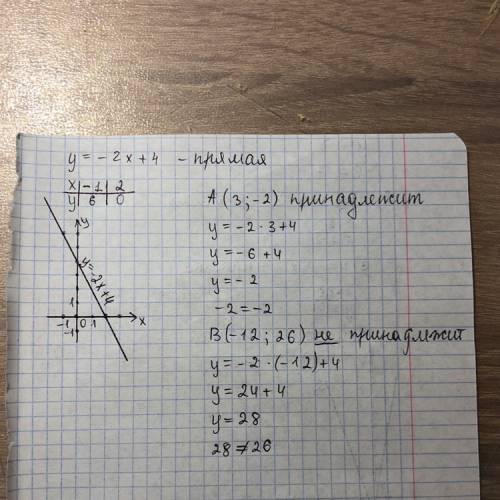 y = -2x+4 - прямая
x | -1 | 2
y | 6 | 0
y
y=-2x+4
1
-1 0 1 x
-1
A (3; -2) принадлежит
y = -2 · 3+4
y = -6 +4
y = -2
-2 = -2
B (-12; 26) не принадлжит
y = -2 · (-12)+4
y = 24+4
y = 28
28 ≠ 26